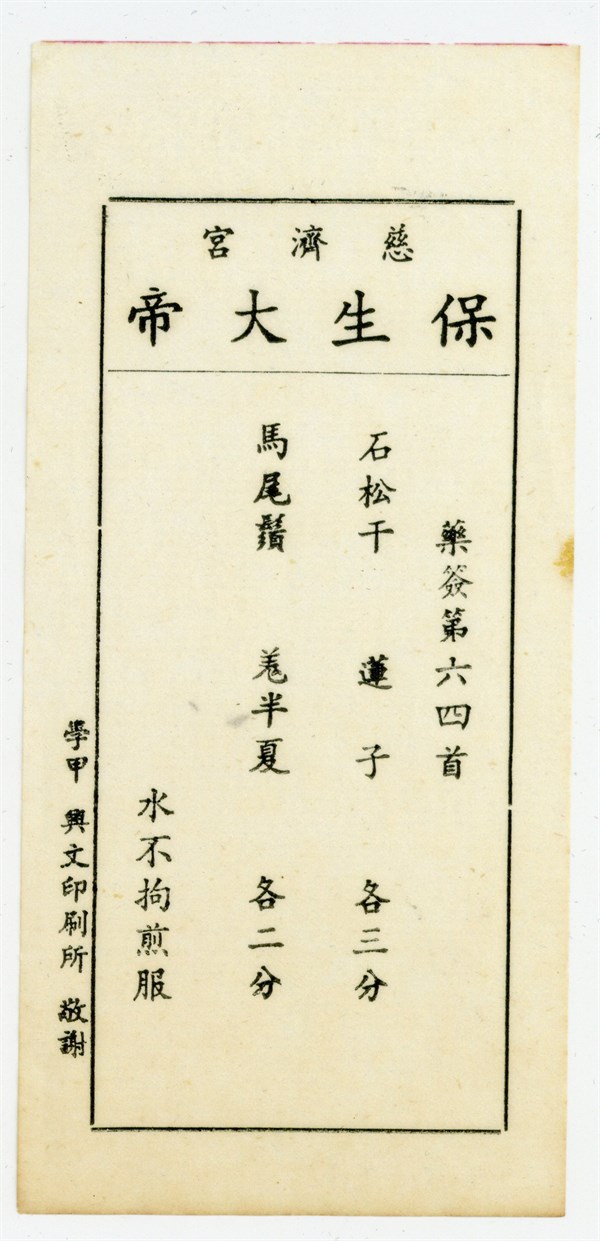 慈濟宮
保生大帝
藥簽第六四首
石松干 蓮子 各三分
馬尾鬚 羗半夏 各二分
水不拘煎服
學甲 興文印刷所 敬謝